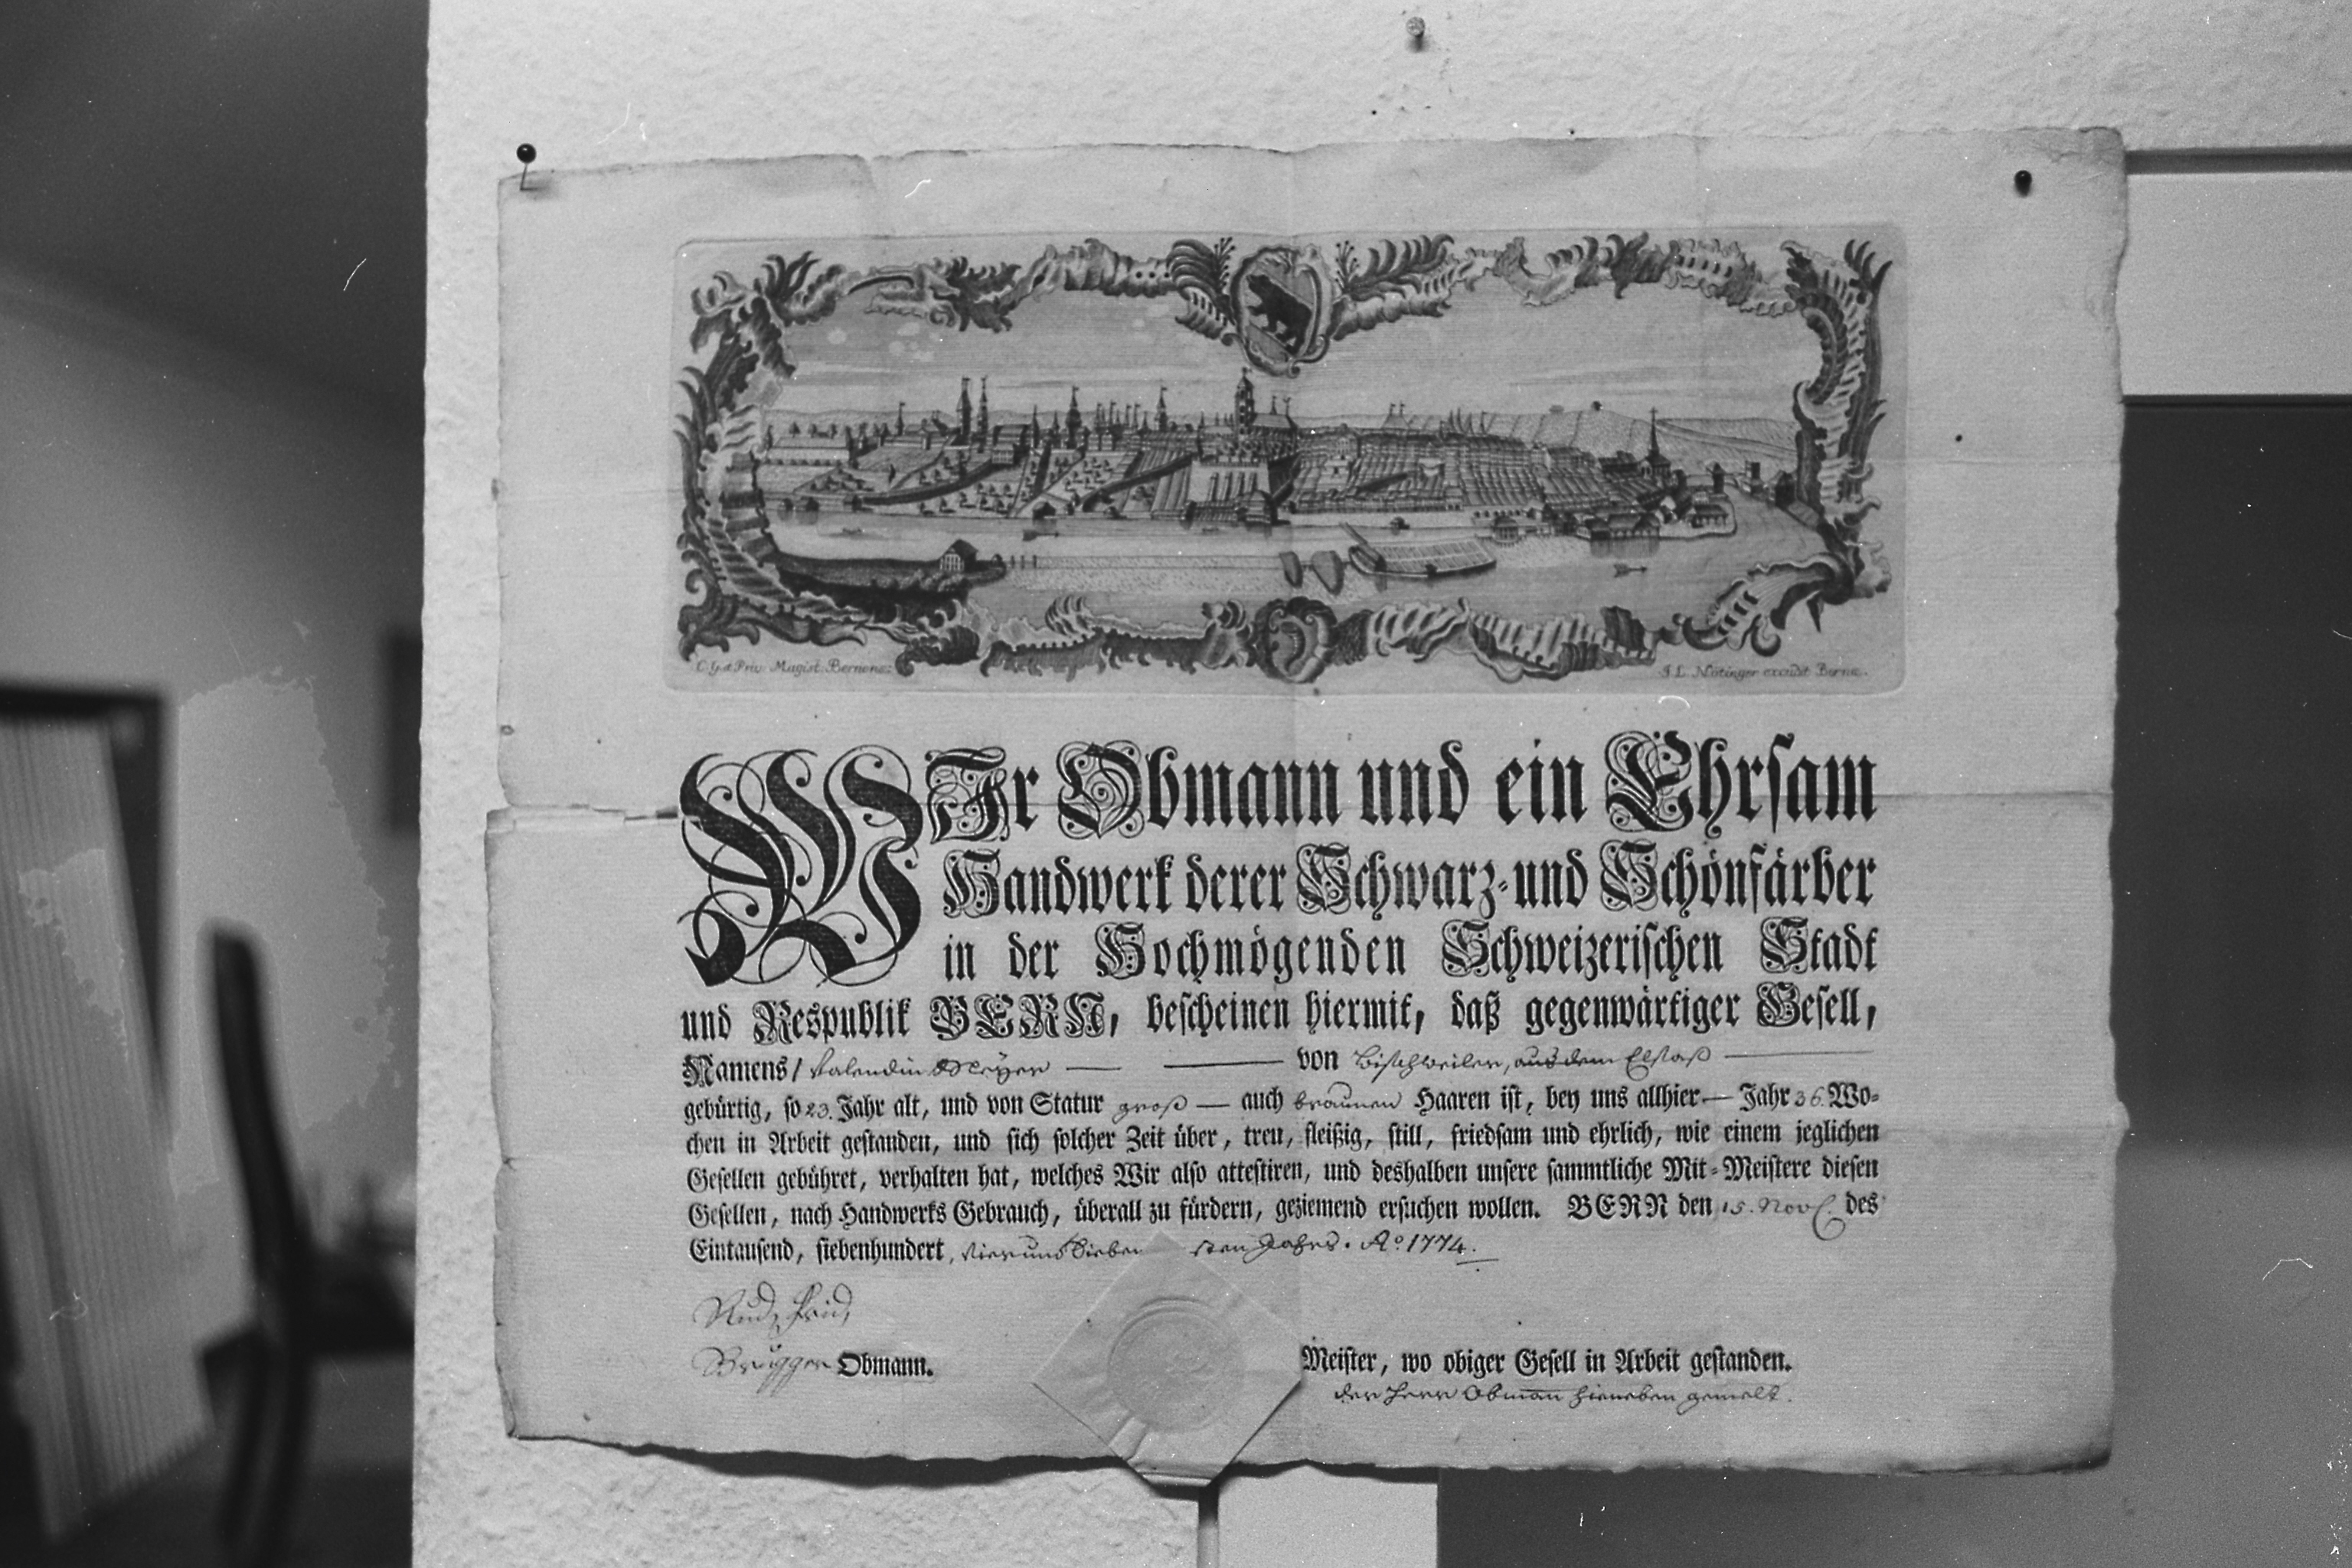 C. G. et Priv. Magist. Bernens:
J. L. Nötinger excudit Bernæ.
WIr Obmann und ein Ehrſam
Handwerk derer Schwarz- und Schönfärber
in der Hochmögenden Schweizeriſchen Stadt
und Respublik BERN, beſcheinen hiermit, daß gegenwärtiger Geſell,
Namens / Valendin Meÿer von Biſchweiler, aus dem Elſaß
gebürtig, ſo 23. Jahr alt, und von Statur groß — auch braunen Haaren iſt, bey uns allhier — Jahr 36. Wo-
chen in Arbeit geſtanden, und ſich ſolcher Zeit über, treu, fleißig, ſtill, friedſam und ehrlich, wie einem jeglichen
Geſellen gebühret, verhalten hat, welches Wir alſo atteſtiren, und deshalben unſere ſammtliche Mit-Meiſtere dieſen
Geſellen, nach Handwerks Gebrauch, überall zu fürdern, geziemend erſuchen wollen. BERN den 15. Nov. des
Eintauſend, ſiebenhundert, vier und Sieben ſten Jahrs. Aº 1774.
Rud. Frid.
Brugger Obmann.
Meiſter, wo obiger Geſell in Arbeit geſtanden.
der Herr Obman hieneben gemelt.